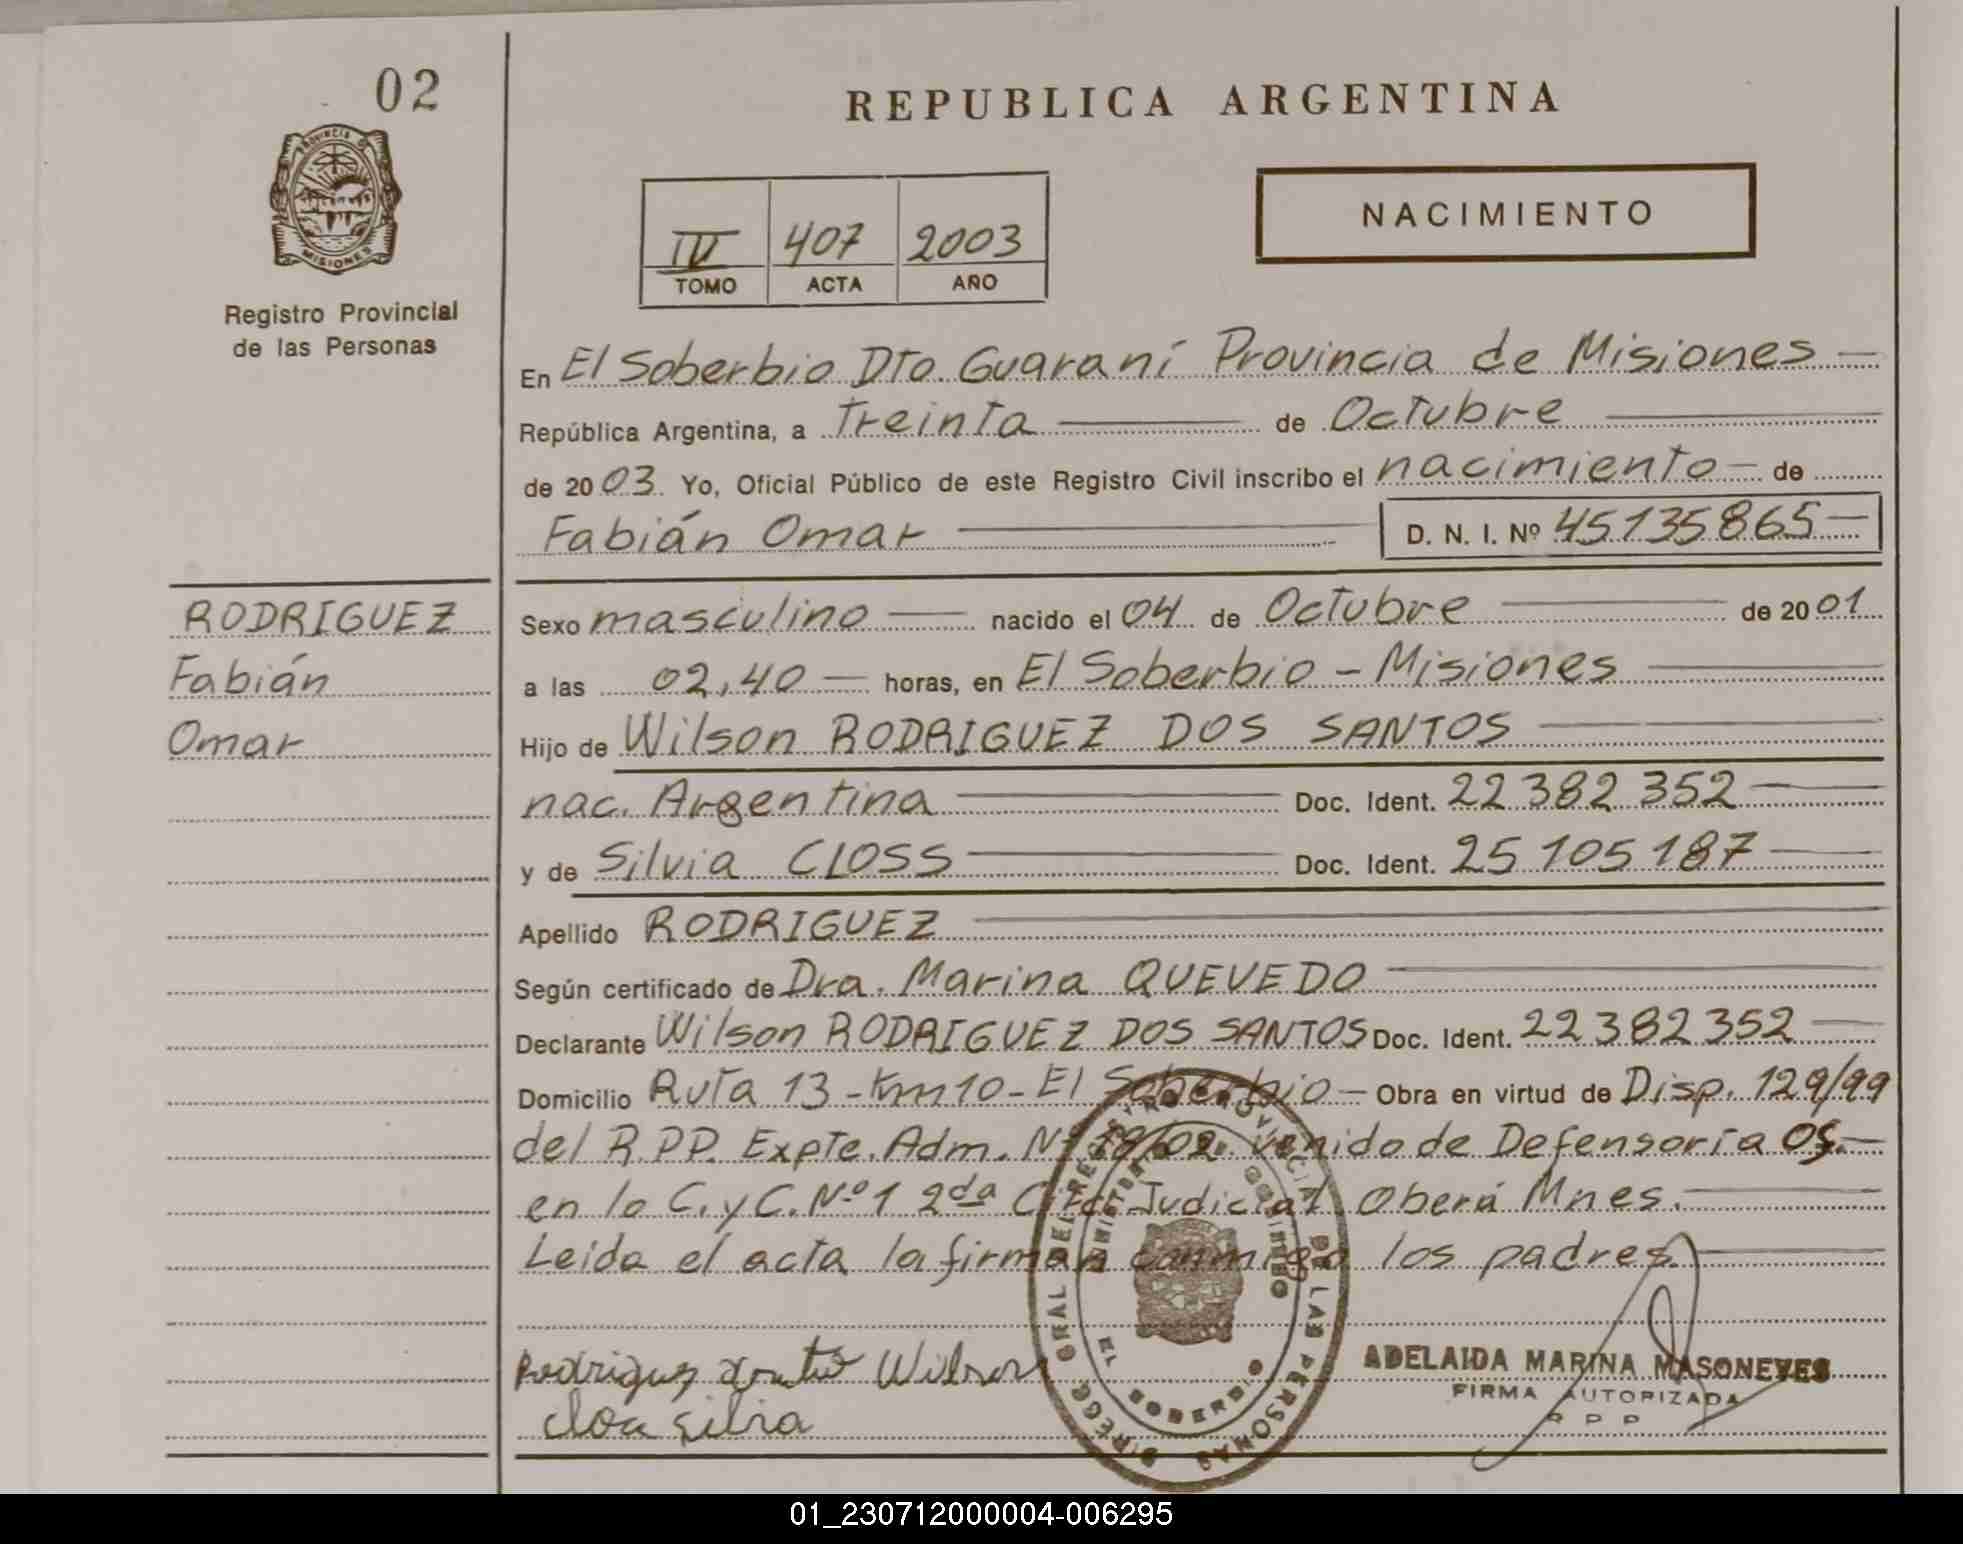 02
PROVINCIA DE
MISIONES
Registro Provincial
de las Personas
REPUBLICA ARGENTINA
IV 407 2003
TOMO ACTA AÑO
NACIMIENTO
En El Soberbio Dto. Guaraní Provincia de Misiones —
República Argentina, a treinta — de Octubre —
de 2003. Yo, Oficial Público de este Registro Civil inscribo el nacimiento — de
Fabián Omar — D. N. I. Nº 45135865 —
RODRIGUEZ
Fabián
Omar
Sexo masculino — nacido el 04 de Octubre — de 2001
a las 02,40 — horas, en El Soberbio - Misiones —
Hijo de Wilson RODRIGUEZ DOS SANTOS —
nac. Argentina — Doc. Ident. 22 382 352 —
y de Silvia CLOSS — Doc. Ident. 25 105 187 —
Apellido RODRIGUEZ —
Según certificado de Dra. Marina QUEVEDO —
Declarante Wilson RODRIGUEZ DOS SANTOS Doc. Ident. 22 382 352 —
Domicilio Ruta 13 - Km 10 - El Soberbio — Obra en virtud de Disp. 129/99
del R.P.P. Expte. Adm. Nº /02 venido de Defensoría Of. —
en lo C. y C. Nº 1 2da Circ. Judicial Oberá Mnes. —
Leida el acta la firman conmigo los padres. —
Rodriguez Wilson
Silvia
REGISTRO PROVINCIAL DE LAS PERSONAS
EL SOBERBIO
ADELAIDA MARINA MASONEVES
FIRMA AUTORIZADA
R P P
01_230712000004-006295